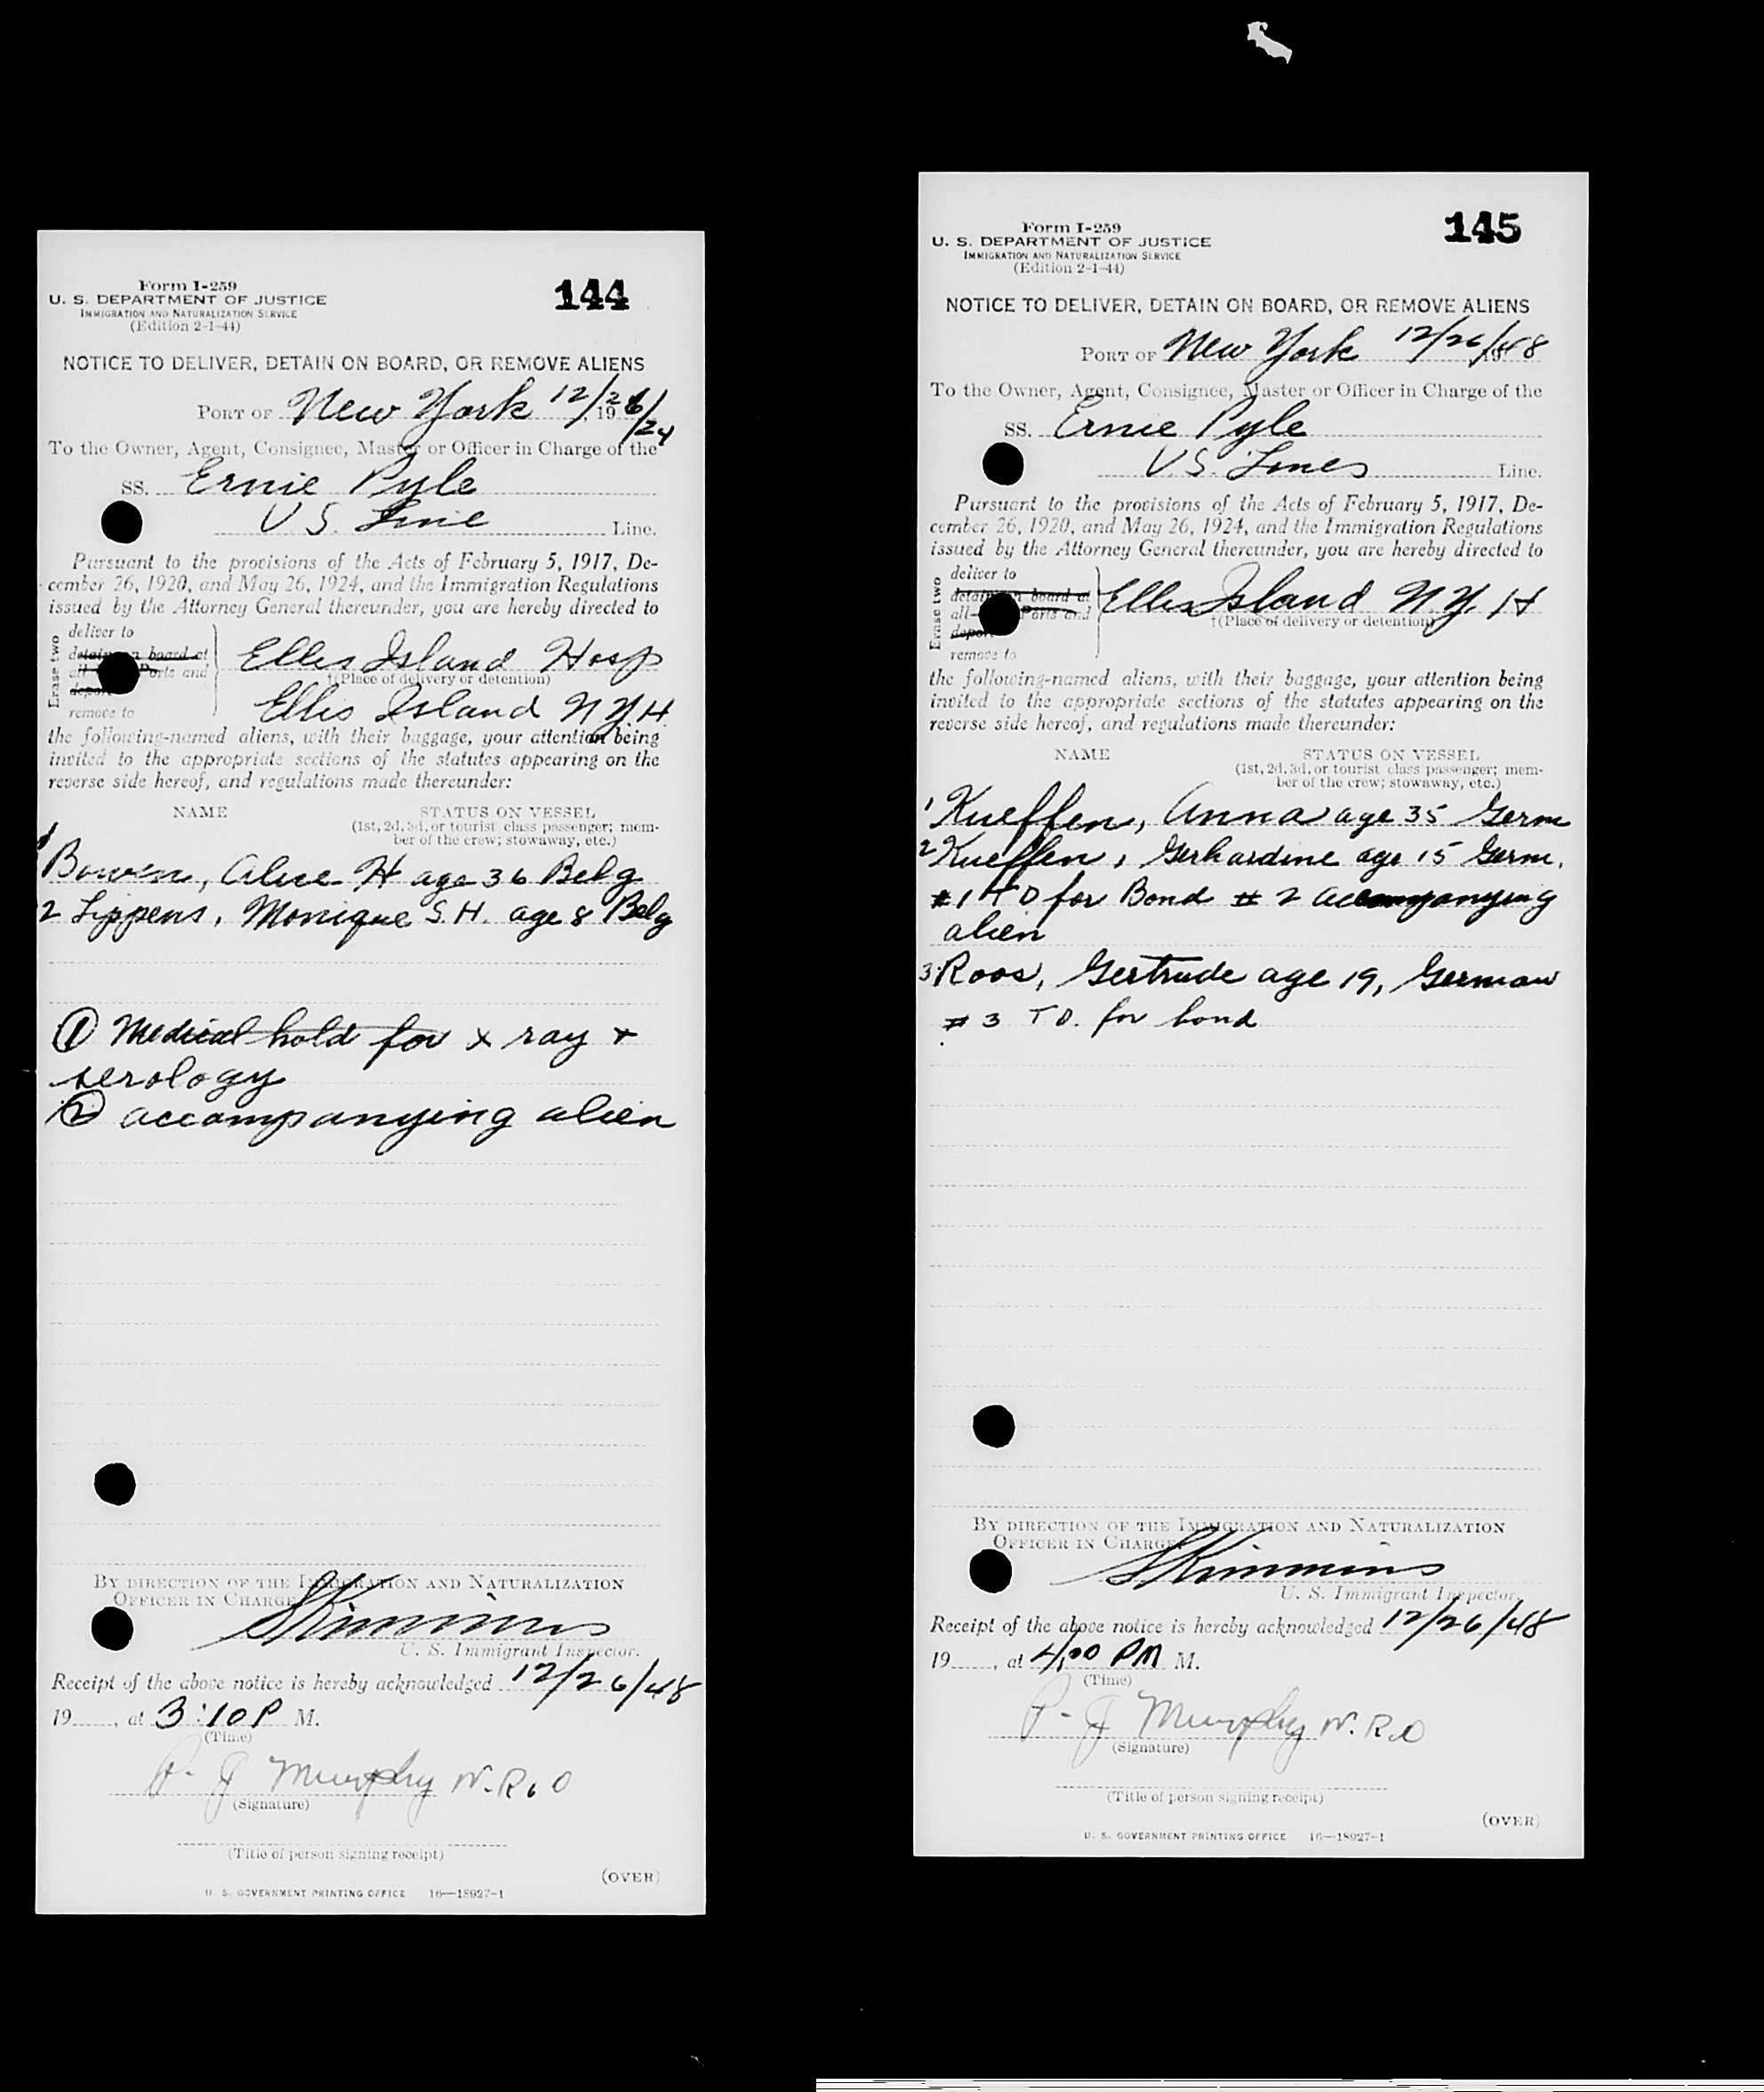 Form I-259
144
U. S. DEPARTMENT OF JUSTICE
IMMIGRATION AND NATURALIZATION SERVICE
(Edition 2-1-44)
NOTICE TO DELIVER, DETAIN ON BOARD, OR REMOVE ALIENS
PORT OF New York 12/26/24 19
To the Owner, Agent, Consignee, Master or Officer in Charge of the
SS. Ernie Pyle
U S. Line Line.
Pursuant to the provisions of the Acts of February 5, 1917, De-
cember 26, 1920, and May 26, 1924, and the Immigration Regulations
issued by the Attorney General thereunder, you are hereby directed to
Erase two
deliver to
detain on board at
all Ports and
depor
remove to
Ellis Island Hosp
†(Place of delivery or detention)
Ellis Island N Y H.
the following-named aliens, with their baggage, your attention being
invited to the appropriate sections of the statutes appearing on the
reverse side hereof, and regulations made thereunder:
NAME STATUS ON VESSEL
(1st, 2d, 3d, or tourist class passenger; mem-
ber of the crew; stowaway, etc.)
1 Bowen, Alice H age 36 Belg
2 Lippens, Monique S. H. age 8 Belg
① Medical hold for x ray +
serology
② accompanying alien
BY DIRECTION OF THE IMMIGRATION AND NATURALIZATION
OFFICER IN CHARGE
SKimmins
U. S. Immigrant Inspector.
Receipt of the above notice is hereby acknowledged 12/26/48
19......, at 3:10 P M.
(Time)
P. J Murphy N.R.O
(Signature)
(Title of person signing receipt)
(OVER)
U. S. GOVERNMENT PRINTING OFFICE 16—18927-1
Form I-259
145
U. S. DEPARTMENT OF JUSTICE
IMMIGRATION AND NATURALIZATION SERVICE
(Edition 2-1-44)
NOTICE TO DELIVER, DETAIN ON BOARD, OR REMOVE ALIENS
PORT OF New York 12/26/48
To the Owner, Agent, Consignee, Master or Officer in Charge of the
SS. Ernie Pyle
U. S. Lines Line.
Pursuant to the provisions of the Acts of February 5, 1917, De-
cember 26, 1920, and May 26, 1924, and the Immigration Regulations
issued by the Attorney General thereunder, you are hereby directed to
Erase two
deliver to
detain on board at
all Ports and
depor
remove to
Ellis Island N.Y. H
†(Place of delivery or detention)
the following-named aliens, with their baggage, your attention being
invited to the appropriate sections of the statutes appearing on the
reverse side hereof, and regulations made thereunder:
NAME STATUS ON VESSEL
(1st, 2d, 3d, or tourist class passenger; mem-
ber of the crew; stowaway, etc.)
1 Kueffen, Anna age 35 Germ
2 Kueffen, Gerhardine age 15 Germ.
#1 T D for Bond #2 accompanying
alien
3 Roos, Gertrude age 19, German
#3 T D. for bond
BY DIRECTION OF THE IMMIGRATION AND NATURALIZATION
OFFICER IN CHARGE
SKimmins
U. S. Immigrant Inspector.
Receipt of the above notice is hereby acknowledged 12/26/48
19......, at 4:00 PM M.
(Time)
P. J Murphy N.R.O
(Signature)
(Title of person signing receipt)
(OVER)
U. S. GOVERNMENT PRINTING OFFICE 16—18927-1